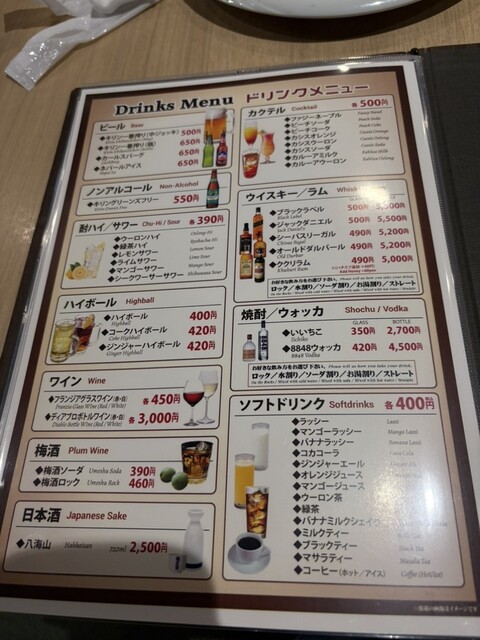 Drinks Menu ドリンクメニュー
ビール Beer
◆キリン一番搾り(中ジョッキ) 500円
◆キリン一番搾り(瓶) 650円
◆カールスバーグ 650円
◆ネパールアイス 650円
ノンアルコール Non-Alcohol
◆キリングリーンズフリー 550円
酎ハイ/サワー Chu-Hi / Sour 各390円
◆ウーロンハイ Oolong-Hi
◆緑茶ハイ Ryokucha-Hi
◆レモンサワー Lemon Sour
◆ライムサワー Lime Sour
◆マンゴーサワー Mango Sour
◆シークワーサーサワー Shikuwasa Sour
ハイボール Highball
◆ハイボール 400円
Highball
◆コークハイボール 420円
Coke Highball
◆ジンジャーハイボール 420円
Ginger Highball
ワイン Wine
◆フランジアグラスワイン(赤・白) 各450円
Franzia Glass Wine (Red / White)
◆ディアブロボトルワイン(赤・白) 各3,000円
Diablo Bottle Wine (Red / White)
梅酒 Plum Wine
◆梅酒ソーダ Umeshu Soda 390円
◆梅酒ロック Umeshu Rock 460円
日本酒 Japanese Sake
◆八海山 Hakkaisan 720ml 2,500円
カクテル Cocktail 各500円
◆ファジーネーブル Fuzzy Navel
◆ピーチソーダ Peach Soda
◆ピーチコーク Peach Coke
◆カシスオレンジ Cassis Orange
◆カシスウーロン Cassis Oolong
◆カシスソーダ Cassis Soda
◆カルーアミルク Kahlua Milk
◆カルーアウーロン Kahlua Oolong
ウイスキー/ラム
◆ブラックラベル 500円 5,500円
Black Label
◆ジャックダニエル 500円 5,500円
Jack Daniel's
◆シーバスリーガル 490円 5,200円
Chivas Regal
◆オールドダルバール 490円 5,200
Old Durbar
◆ククリラム 490円 5,000円
Khukuri Rum
お好きな飲み方をお選び下さい。 Please tell us how you want to drink.
ロック/水割り/ソーダ割り/お湯割り/ストレート
焼酎/ウォッカ Shochu / Vodka
GLASS BOTTLE
◆いいちこ 350円 2,700円
Iichiko
◆8848ウォッカ 420円 4,500円
8848 Vodka
お好きな飲み方をお選び下さい。
ロック/水割り/ソーダ割り/お湯割り/ストレート
ソフトドリンク Softdrinks 各400円
◆ラッシー Lassi
◆マンゴーラッシー Mango Lassi
◆バナナラッシー Banana Lassi
◆コカコーラ Coca Cola
◆ジンジャーエール
◆オレンジジュース
◆マンゴージュース
◆ウーロン茶
◆緑茶
◆バナナミルクシェイク
◆ミルクティー
◆ブラックティー Black Tea
◆マサラティー Masala Tea
◆コーヒー(ホット/アイス) Coffee (Hot/Ice)
※掲載の画像はイメージです